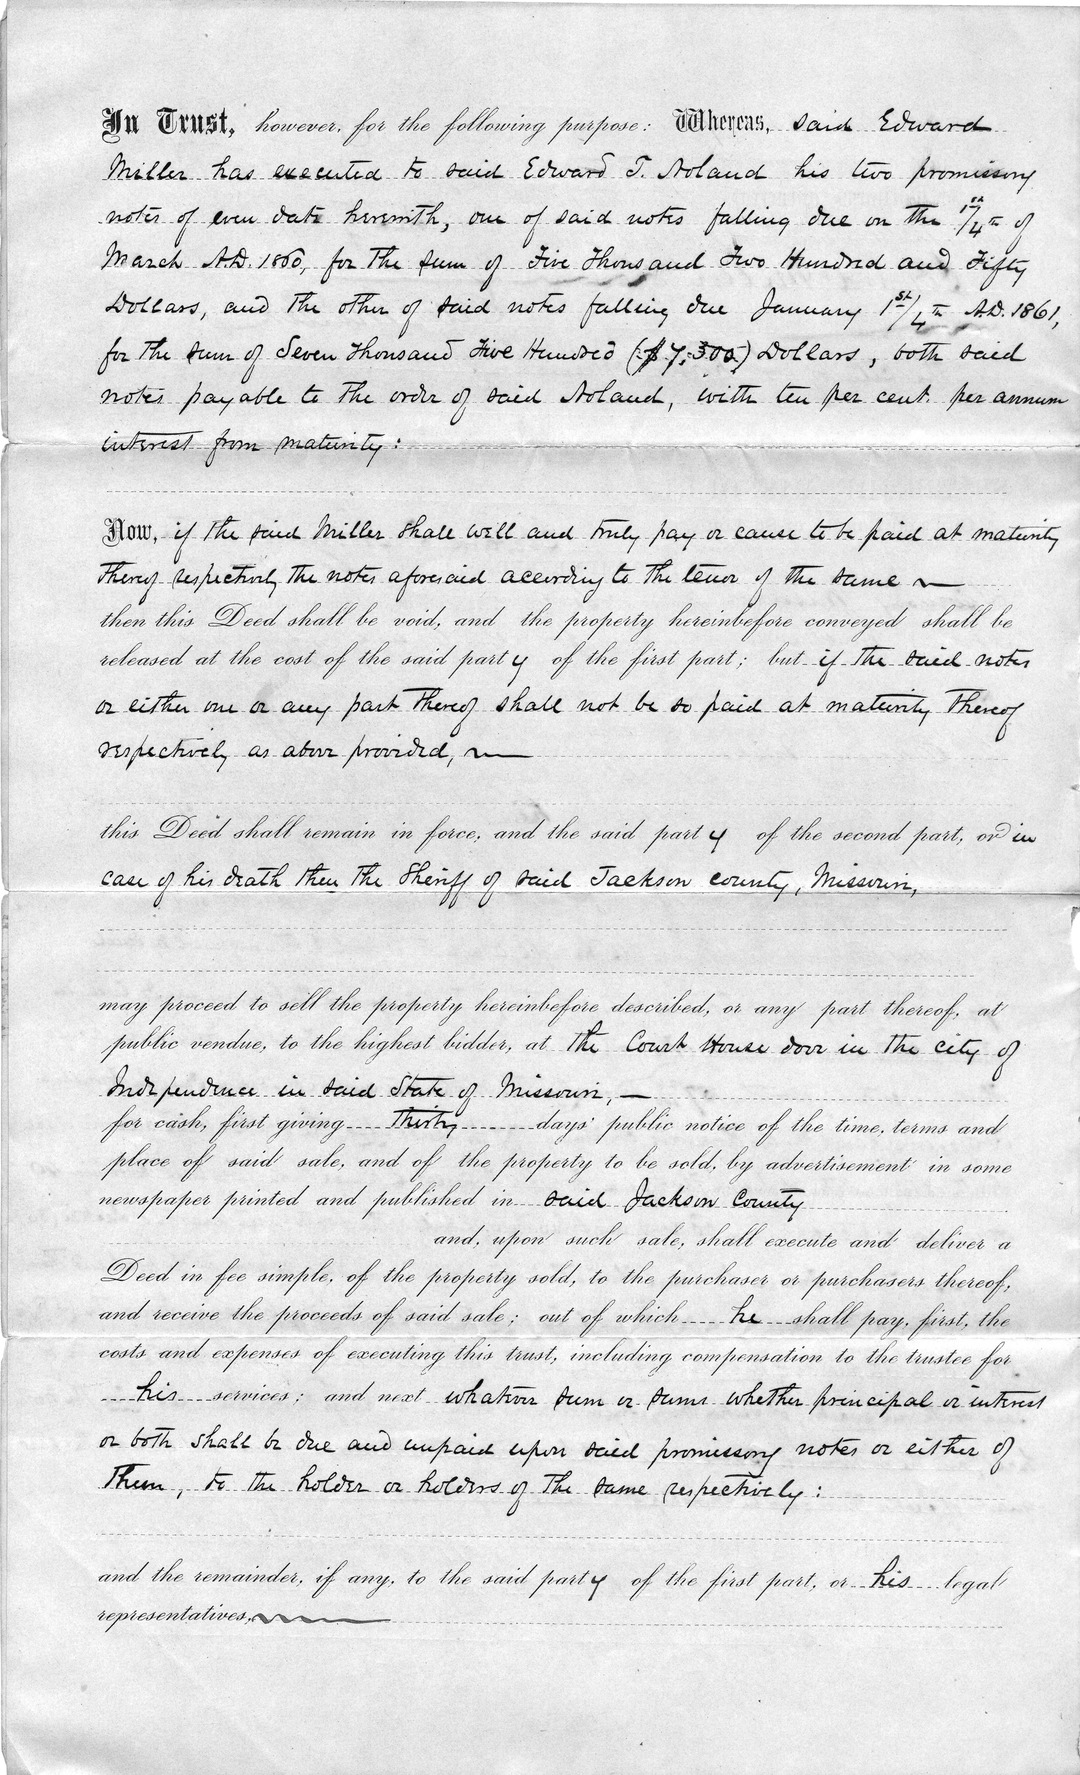 In Trust, however, for the following purpose: Whereas, said Edward
Miller has executed to said Edward T. Noland his two promissory
notes of even date herewith, one of said notes falling due on the 1st/4th of
March A.D. 1860, for the sum of Five Thousand Two Hundred and Fifty
Dollars, and the other of said notes falling due January 1st/4th A.D. 1861,
for the sum of Seven Thousand Five Hundred ($7,500) Dollars, both said
notes payable to the order of said Noland, with ten per cent. per annum
interest from maturity:
Now, if the said Miller shall well and truly pay or cause to be paid at maturity
thereof respectively the notes aforesaid according to the tenor of the same
then this Deed shall be void, and the property hereinbefore conveyed shall be
released at the cost of the said party of the first part; but if the said notes
or either one or any part thereof shall not be so paid at maturity thereof
respectively as above provided,
this Deed shall remain in force, and the said party of the second part, or in
case of his death then the Sheriff of said Jackson county, Missouri,
may proceed to sell the property hereinbefore described, or any part thereof, at
public vendue, to the highest bidder, at the Court House door in the city of
Independence in said State of Missouri,
for cash, first giving thirty days' public notice of the time, terms and
place of said sale, and of the property to be sold, by advertisement in some
newspaper printed and published in said Jackson County
and, upon such sale, shall execute and deliver a
Deed in fee simple, of the property sold, to the purchaser or purchasers thereof,
and receive the proceeds of said sale; out of which he shall pay, first, the
costs and expenses of executing this trust, including compensation to the trustee for
his services; and next whatever sum or sums whether principal or interest
or both shall be due and unpaid upon said promissory notes or either of
them, to the holder or holders of the same respectively:
and the remainder, if any, to the said party of the first part, or his legal
representatives.